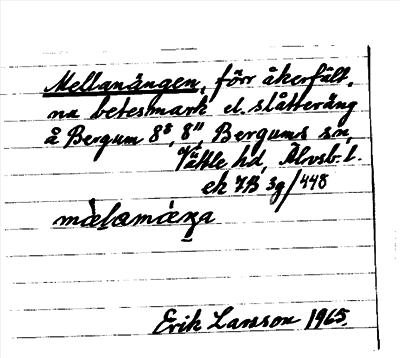 Mellanängen, förr åkerfält,
nu betesmark el. slåtteräng
å Bergum 8⁸, 8¹¹, Bergums sn,
Vättle hd, Älvsb. l.
ek 7B 3g/448
Erik Larsson 1965.